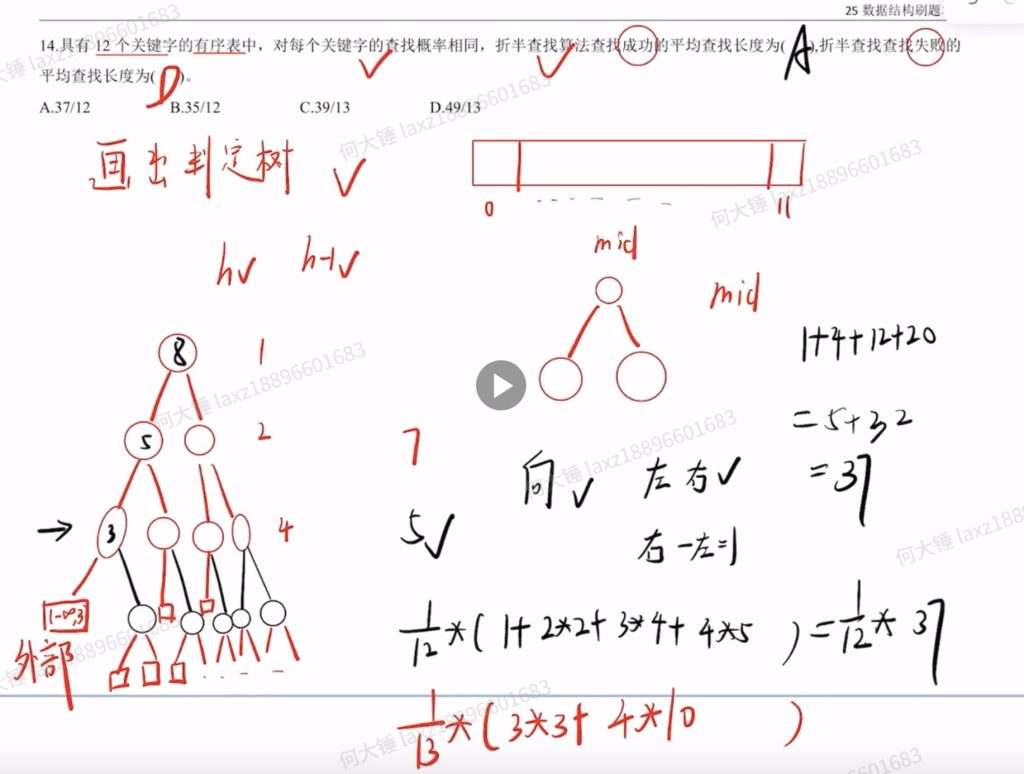 25 数据结构刷题
14.具有 12 个关键字的有序表中，对每个关键字的查找概率相同，折半查找算法查找成功的平均查找长度为( A ),折半查找查找失败的
平均查找长度为( D )。
A.37/12 B.35/12 C.39/13 D.49/13
画出判定树 ✓
0 11
h✓ h-1✓
mid
mid
1+4+12+20
=5+32
=37
8 1
5 2
3 4
7
5✓
向✓ 左右✓
右-左=1
(-∞,3)
外部
1/12*(1+2*2+3*4+4*5)=1/12*37
1/13*(3*3+4*10)
何大锤 laxz18896601683